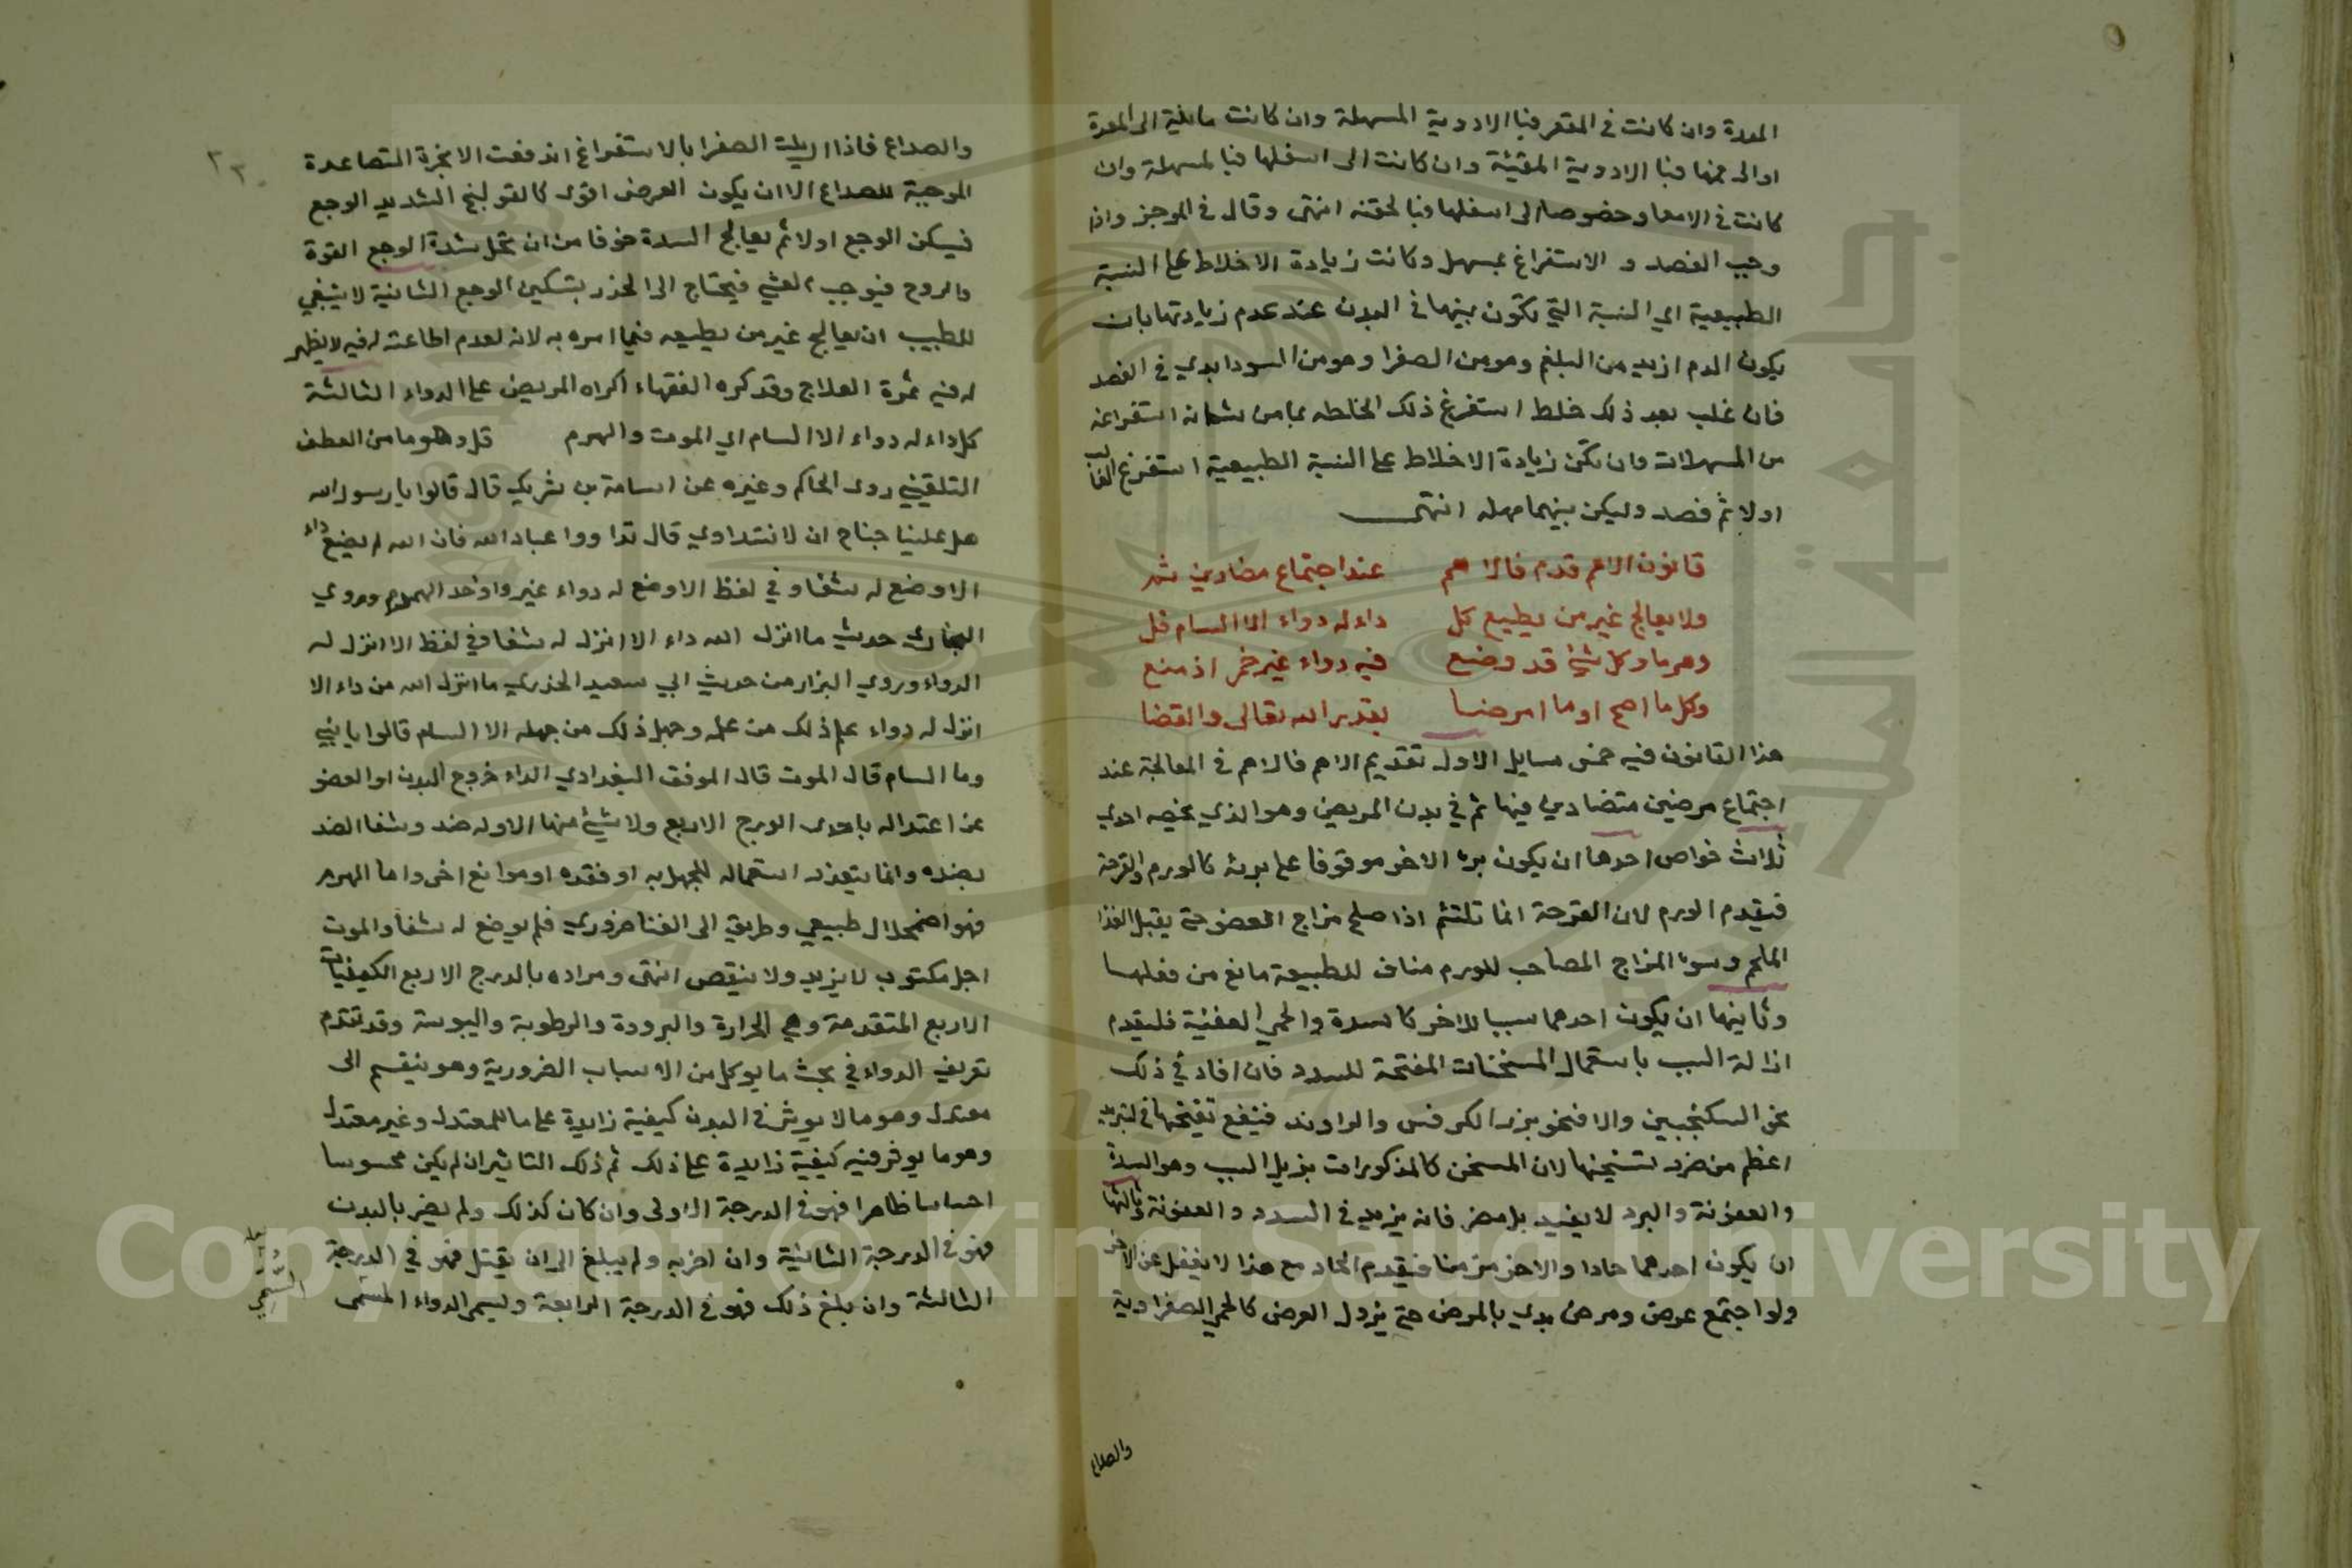 المعدة وان كانت في المقعر فبا الادوية المسهلة وان كانت مائلة الى المعدة
او الى فمها فبا الادوية المقيئة وان كانت الى اسفلها فبا لمسهلة وان
كانت في الامعا وخصوصا الى اسفلها فبا لحقنه انتهى وقال في الموجز واذا
وجب الفصد و الاستفراغ بمسهل وكانت زيادة الاخلاط على النسبة
الطبيعية اي النسبة التي تكون بينها في البدن عند عدم زيادتها بان
يكون الدم ازيد من البلغم وهو من الصفرا وهو من السودا بدي في الفصد
فان غلب بعد ذلك خلط استفرغ ذلك الخلط بما من شانه استفراغه
من المسهلات وان تكن زيادة الاخلاط على النسبة الطبيعية استفرغ الغالب
اولا ثم فصد وليكن بينهما مهلة انتهى
قانون الاهم قدم فالاهم عند اجتماع مضادين ثم
ولا يعالج غير من يطيع كل داء له دواء الا السام قل
وهرما وكل شئ قد وضع فيه دواء غير خمر اذ منع
وكل ما اصح او ما امرضا بقدر الله تعالى والقضا
هذا القانون فيه خمس مسايل الاول تقديم الاهم فالاهم في المعالجة عند
اجتماع مرضين متضادين فيها ثم في بدن المريض وهو الذي يخصه احدي
ثلاث خواص احدها ان يكون برء الاخر موقوفا على برئه كالورم والقرحة
فيقدم الورم لان القرحة انما تلتئم اذا صلح مزاج العضو حتى يقبل الغذا
الملحم وسوء المزاج المصاحب للورم مناف للطبيعة مانع من فعلها
وثانيها ان يكون احدهما سببا للاخر كالسدة والحمى العفنية فليقدم
ازالة السبب باستعمال المسخنات المفتحة للسدد فان افاد في ذلك
نحو السكنجبين والا فنحو بزر الكرفس والراوند فنفع تفتيحها في التبريد
اعظم من ضرر تسخينها لان المسخن كالمذكورات يزيل السبب وهو السدة
والعفونة والبرد لا يفيد بل مضر فانه يزيد في السدد والعفونة وثالثها
ان يكون احدهما حادا والاخر مزمنا فيقدم الحاد مع هذا لا يغفل عن الاخر
ولو اجتمع عرض ومرض بدي بالمرض حتى يزول العرض كالحمى الصفراوية
والصداع
٢٣
والصداع فاذا ازيلت الصفرا بالاستفراغ اندفعت الابخرة المتصاعدة
الموجبة للصداع الا ان يكون العرض اقوى كالقولنج الشديد الوجع
فيسكن الوجع اولا ثم يعالج السدة خوفا من ان تحل شدة الوجع القوة
والروح فيوجب الغشي فيحتاج الى المخدر بتسكين الوجع الثانية لا ينبغي
للطبيب ان يعالج غير من يطيعه فيما امره به لانه لعدم اطاعته له فيه لا يظهر
له فيه ثمرة العلاج وقد كره الفقهاء اكراه المريض على الدواء الثالثة
كل داء له دواء الا السام اي الموت والهرم قل وهو ما من العطف
التلقيني روى الحاكم وغيره عن اسامة بن شريك قال قالوا يا رسول الله
هل علينا جناح ان لا نتداوي قال تداووا عباد الله فان الله لم يضع داء
الا وضع له شفا وفي لفظ الا وضع له دواء غير واحد الهرم وروي
البخاري حديث ما انزل الله داء الا انزل له شفا وفي لفظ الا انزل له
الدواء وروي البزار من حديث ابي سعيد الخدري ما انزل الله من داء الا
انزل له دواء علم ذلك من علمه وجهل ذلك من جهله الا السام قالوا يا نبي
وما السام قال الموت قال الموفق البغدادي الداء خروج البدن او العضو
عن اعتداله باحدى الدرج الاربع ولا شئ منها الا وله ضد وشفا الضد
بضده وانما يتعذر استعماله للجهل به او فقده او موانع اخر واما الهرم
فهو اضمحلال طبيعي وطريق الى الفنا ضروري فلم يوضع له شفا والموت
اجل مكتوب لا يزيد ولا ينقص انتهى ومراده بالدرج الاربع الكيفيات
الاربع المتقدمة وهي الحرارة والبرودة والرطوبة واليبوسة وقد تقدم
تعريف الدواء في بحث ما يوكل من الاسباب الضرورية وهو ينقسم الى
معتدل وهو ما لا يوثر في البدن كيفية زايدة على ما للمعتدل وغير معتدل
وهو ما يوثر فيه كيفية زايدة على ذلك ثم ذلك التاثير ان لم يكن محسوسا
احساسا ظاهرا فهو في الدرجة الاولى وان كان كذلك ولم يضر بالبدن
فهو في الدرجة الثانية وان اضر به ولم يبلغ الى ان يقتل فهو في الدرجة
الثالثة وان بلغ ذلك فهو في الدرجة الرابعة ويسمى الدواء المسمى
Copyright © King Saud University